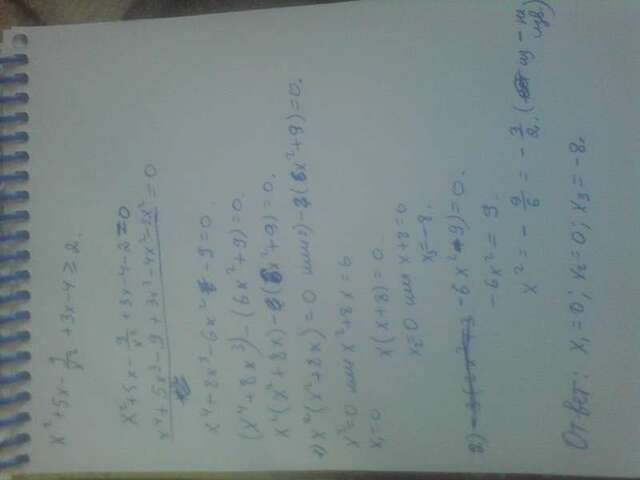 x² + 5x - 9/x² + 3x - 4 ≥ 2.
x² + 5x - 9/x² + 3x - 4 - 2 = 0
x⁴ + 5x³ - 9 + 3x³ - 4x² - 2x² = 0
x⁴ + 8x³ - 6x² - 9 = 0.
(x⁴ + 8x³) - (6x² + 9) = 0.
x²(x² + 8x) - (6x² + 9) = 0.
1) x²(x² + 8x) = 0 или 2) - (6x² + 9) = 0.
x² = 0 или x² + 8x = 0
x₁ = 0 x(x + 8) = 0.
x₂ = 0 или x + 8 = 0
x₃ = -8.
2) - 6x² - 9) = 0.
- 6x² = 9.
x² = - 9/6 = - 3/2
Ответ: x₁ = 0; x₂ = 0; x₃ = -8.